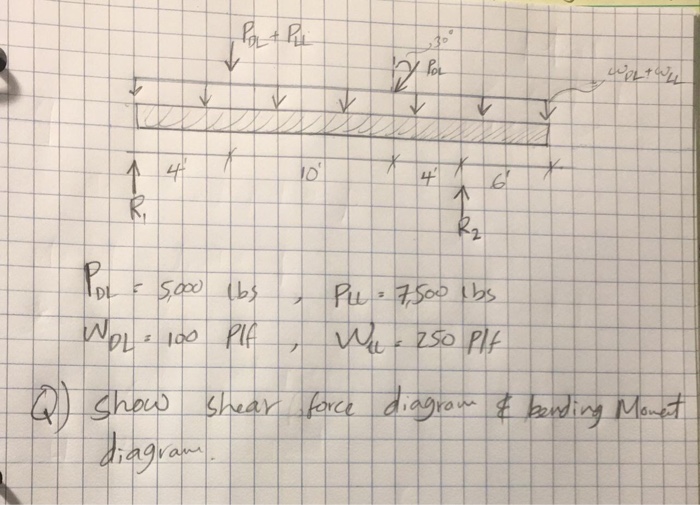 P_DL + P_LL
30°
P_DL
W_DL + W_LL
4' 10' 4' 6'
R₁
R₂
P_DL = 5,000 lbs , P_LL = 7,500 lbs
W_DL = 100 Plf , W_LL = 250 Plf
Q) Show shear force diagram & bending Moment
diagram.